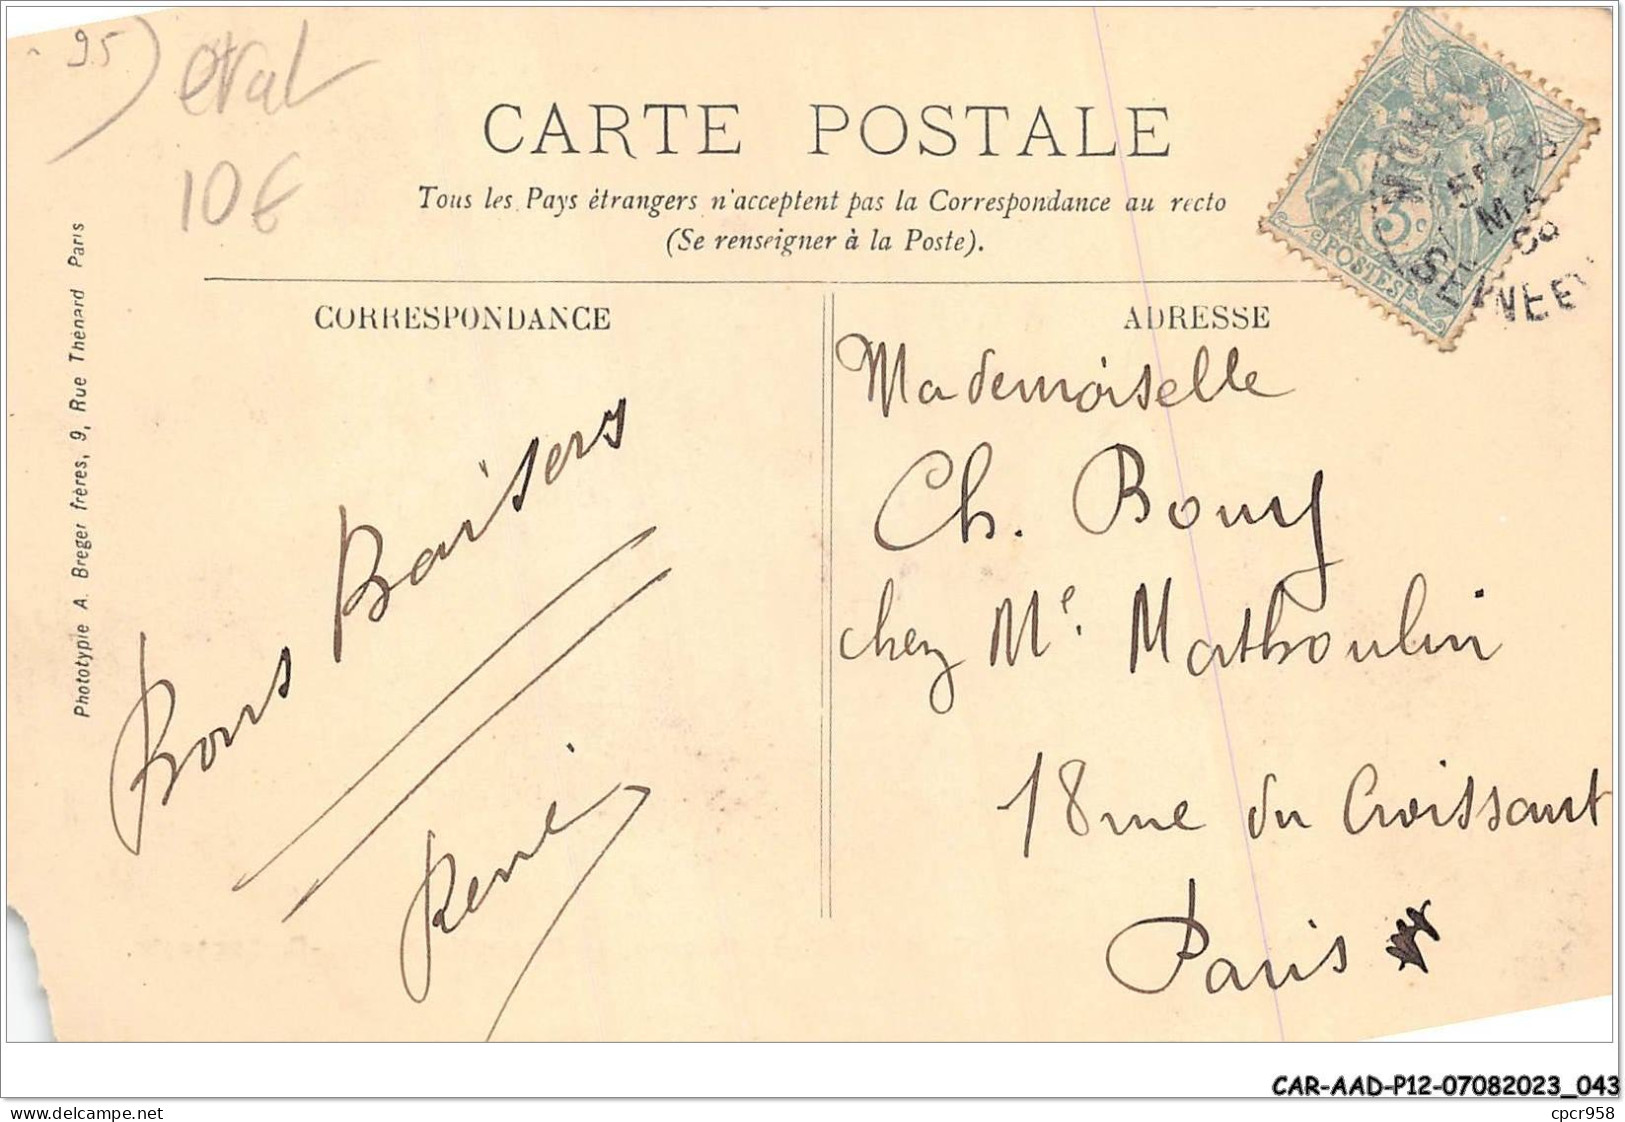 95) éval
10€
CARTE POSTALE
Tous les Pays étrangers n'acceptent pas la Correspondance au recto
(Se renseigner à la Poste).
CORRESPONDANCE
ADRESSE
Phototypie A. Breger frères, 9, Rue Thénard Paris
3c
POSTES
MA
Bons Baisers
René
Mademoiselle
Ch. Bouy
chez Me. Mathoulin
18 rue du Croissant
Paris
CAR-AAD-P12-07082023_043
delcampe.net
cpcr958